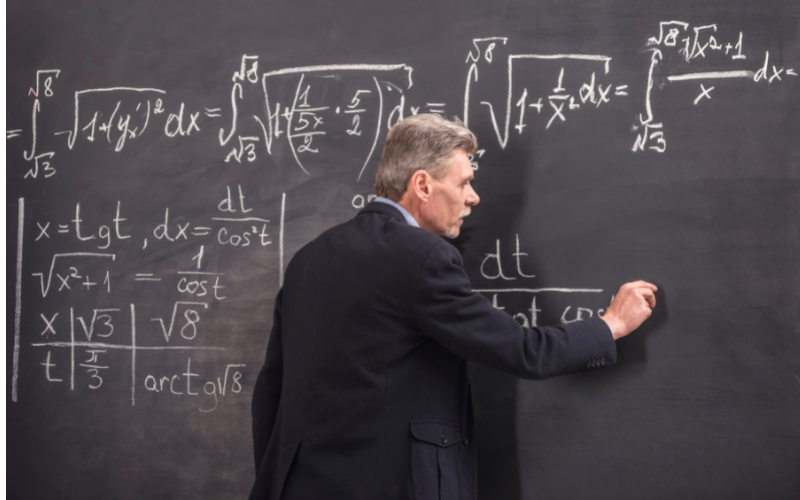 = ∫_{√3}^{√8} √(1+(y'ₓ)²) dx = ∫_{√3}^{√8} √(1+(1/(5x/2) · 5/2)) dx = ∫^{√8} √(1+1/x²) dx = ∫_{√3}^{√8} √(x²+1)/x dx =
x = tgt , dx = dt/cos²t
√(x²+1) = 1/cost
x | √3 | √8
t | π/3 | arctg√8
dt
tgt cos